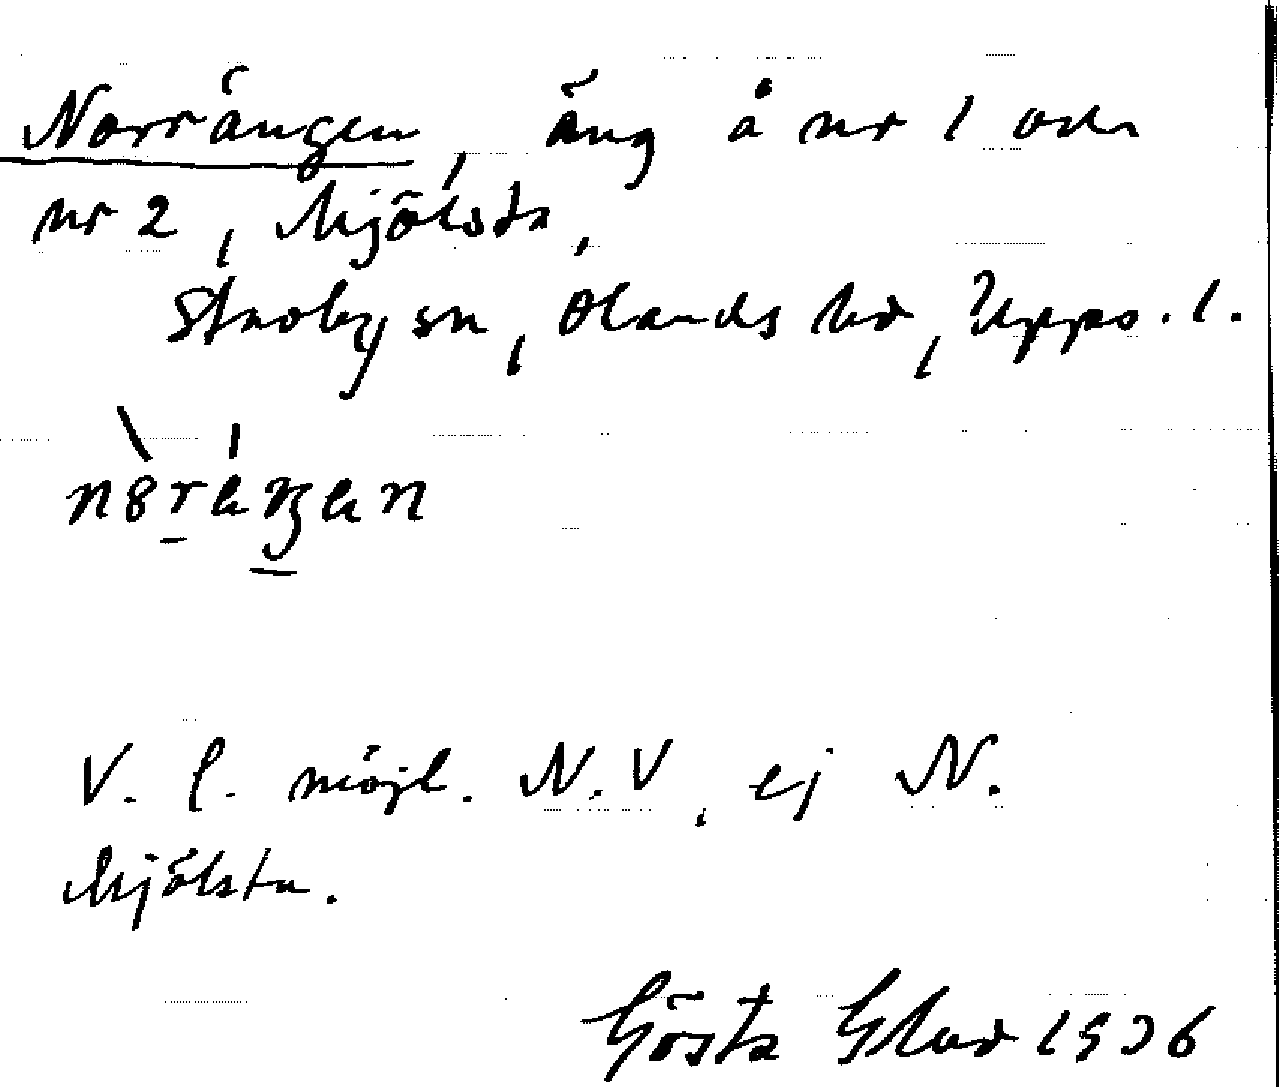 Norrängen, äng å nr 1 och
nr 2, Mjölsta,
Skoby sn, Olands hd, Upps. l.
V. l. möjl. N.V, ej N.
Mjölsta.
Gösta 1936